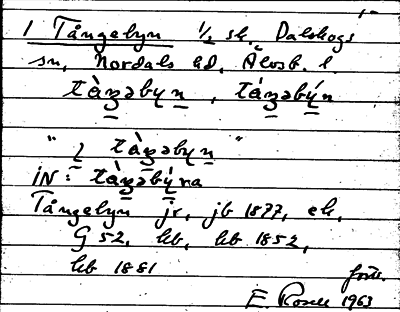 1 Tångebyn ½ sk. Dalskogs
sn, Nordals hd, Älvsb. l
tàŋəbyn, táŋəbýn
" ʅ tàŋəbyn "
iN: tàŋəbýna
Tångebyn jr, jb 1877, ek,
G 52, kb, hb 1852,
hb 1881
fört.
E. Rosell 1963